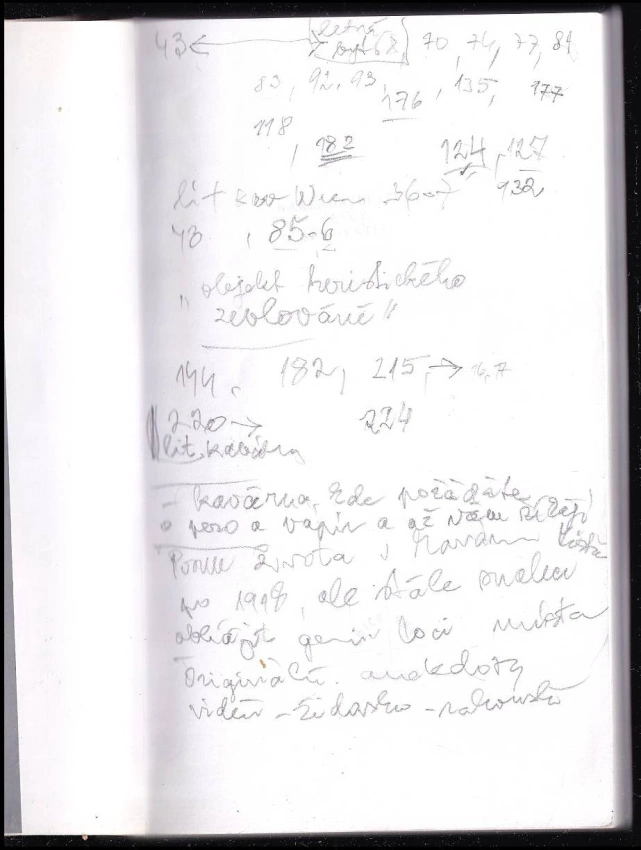 43 letná
byt 68, 70, 74, 77, 81
83, 92, 93, 176, 135, 177
118
, 182 124, 127
lit kav Wien 36-7 132
43 , 85-6
" objekt turistického
zevlování "
144, 182, 215, → 16, 7
220 → 224
lit. kavárny
- kavárna, kde požádáte
o pero a papír a až vám
života v kavárn
po 1918, ale stále snahu
obhájit genia loci místa
originálů. anekdoty
vídeň - židovsko - rakousko